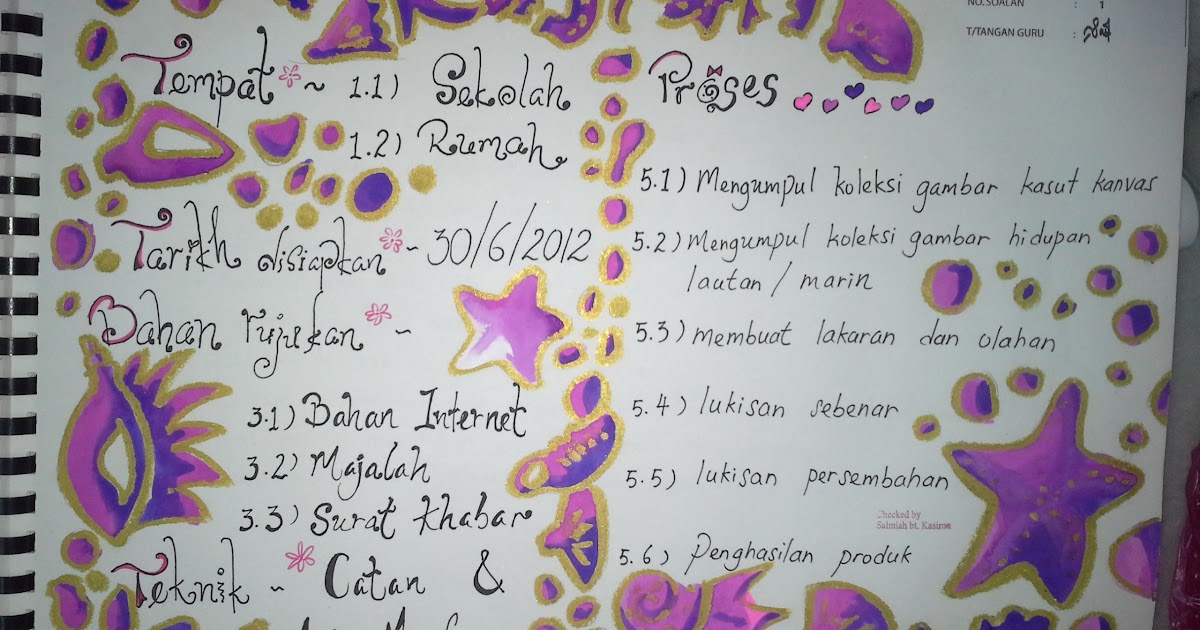 NO. SOALAN : 1
T/TANGAN GURU :
Tempat ~ 1.1) Sekolah
1.2) Rumah
Tarikh disiapkan ~ 30/6/2012
Bahan rujukan ~
3.1) Bahan Internet
3.2) Majalah
3.3) Surat Khabar
Teknik ~ Catan &
Proses
5.1) Mengumpul koleksi gambar kasut kanvas
5.2) Mengumpul koleksi gambar hidupan
lautan / marin
5.3) membuat lakaran dan olahan
5.4) lukisan sebenar
5.5) lukisan persembahan
Checked by
Salmiah bt. Kasimon
5.6) Penghasilan produk